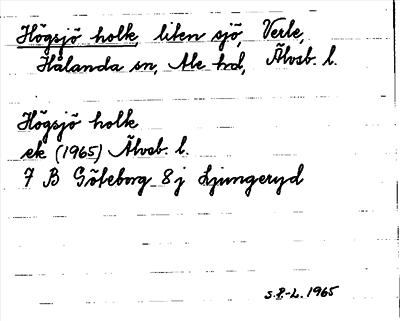 Högsjö holk, liten sjö, Verle,
Hålanda sn, Ale hd, Älvsb. l.
Högsjö holk
ek (1965) Älvsb. l.
7 B Göteborg 8 j Ljungeryd
S.P.-L. 1965